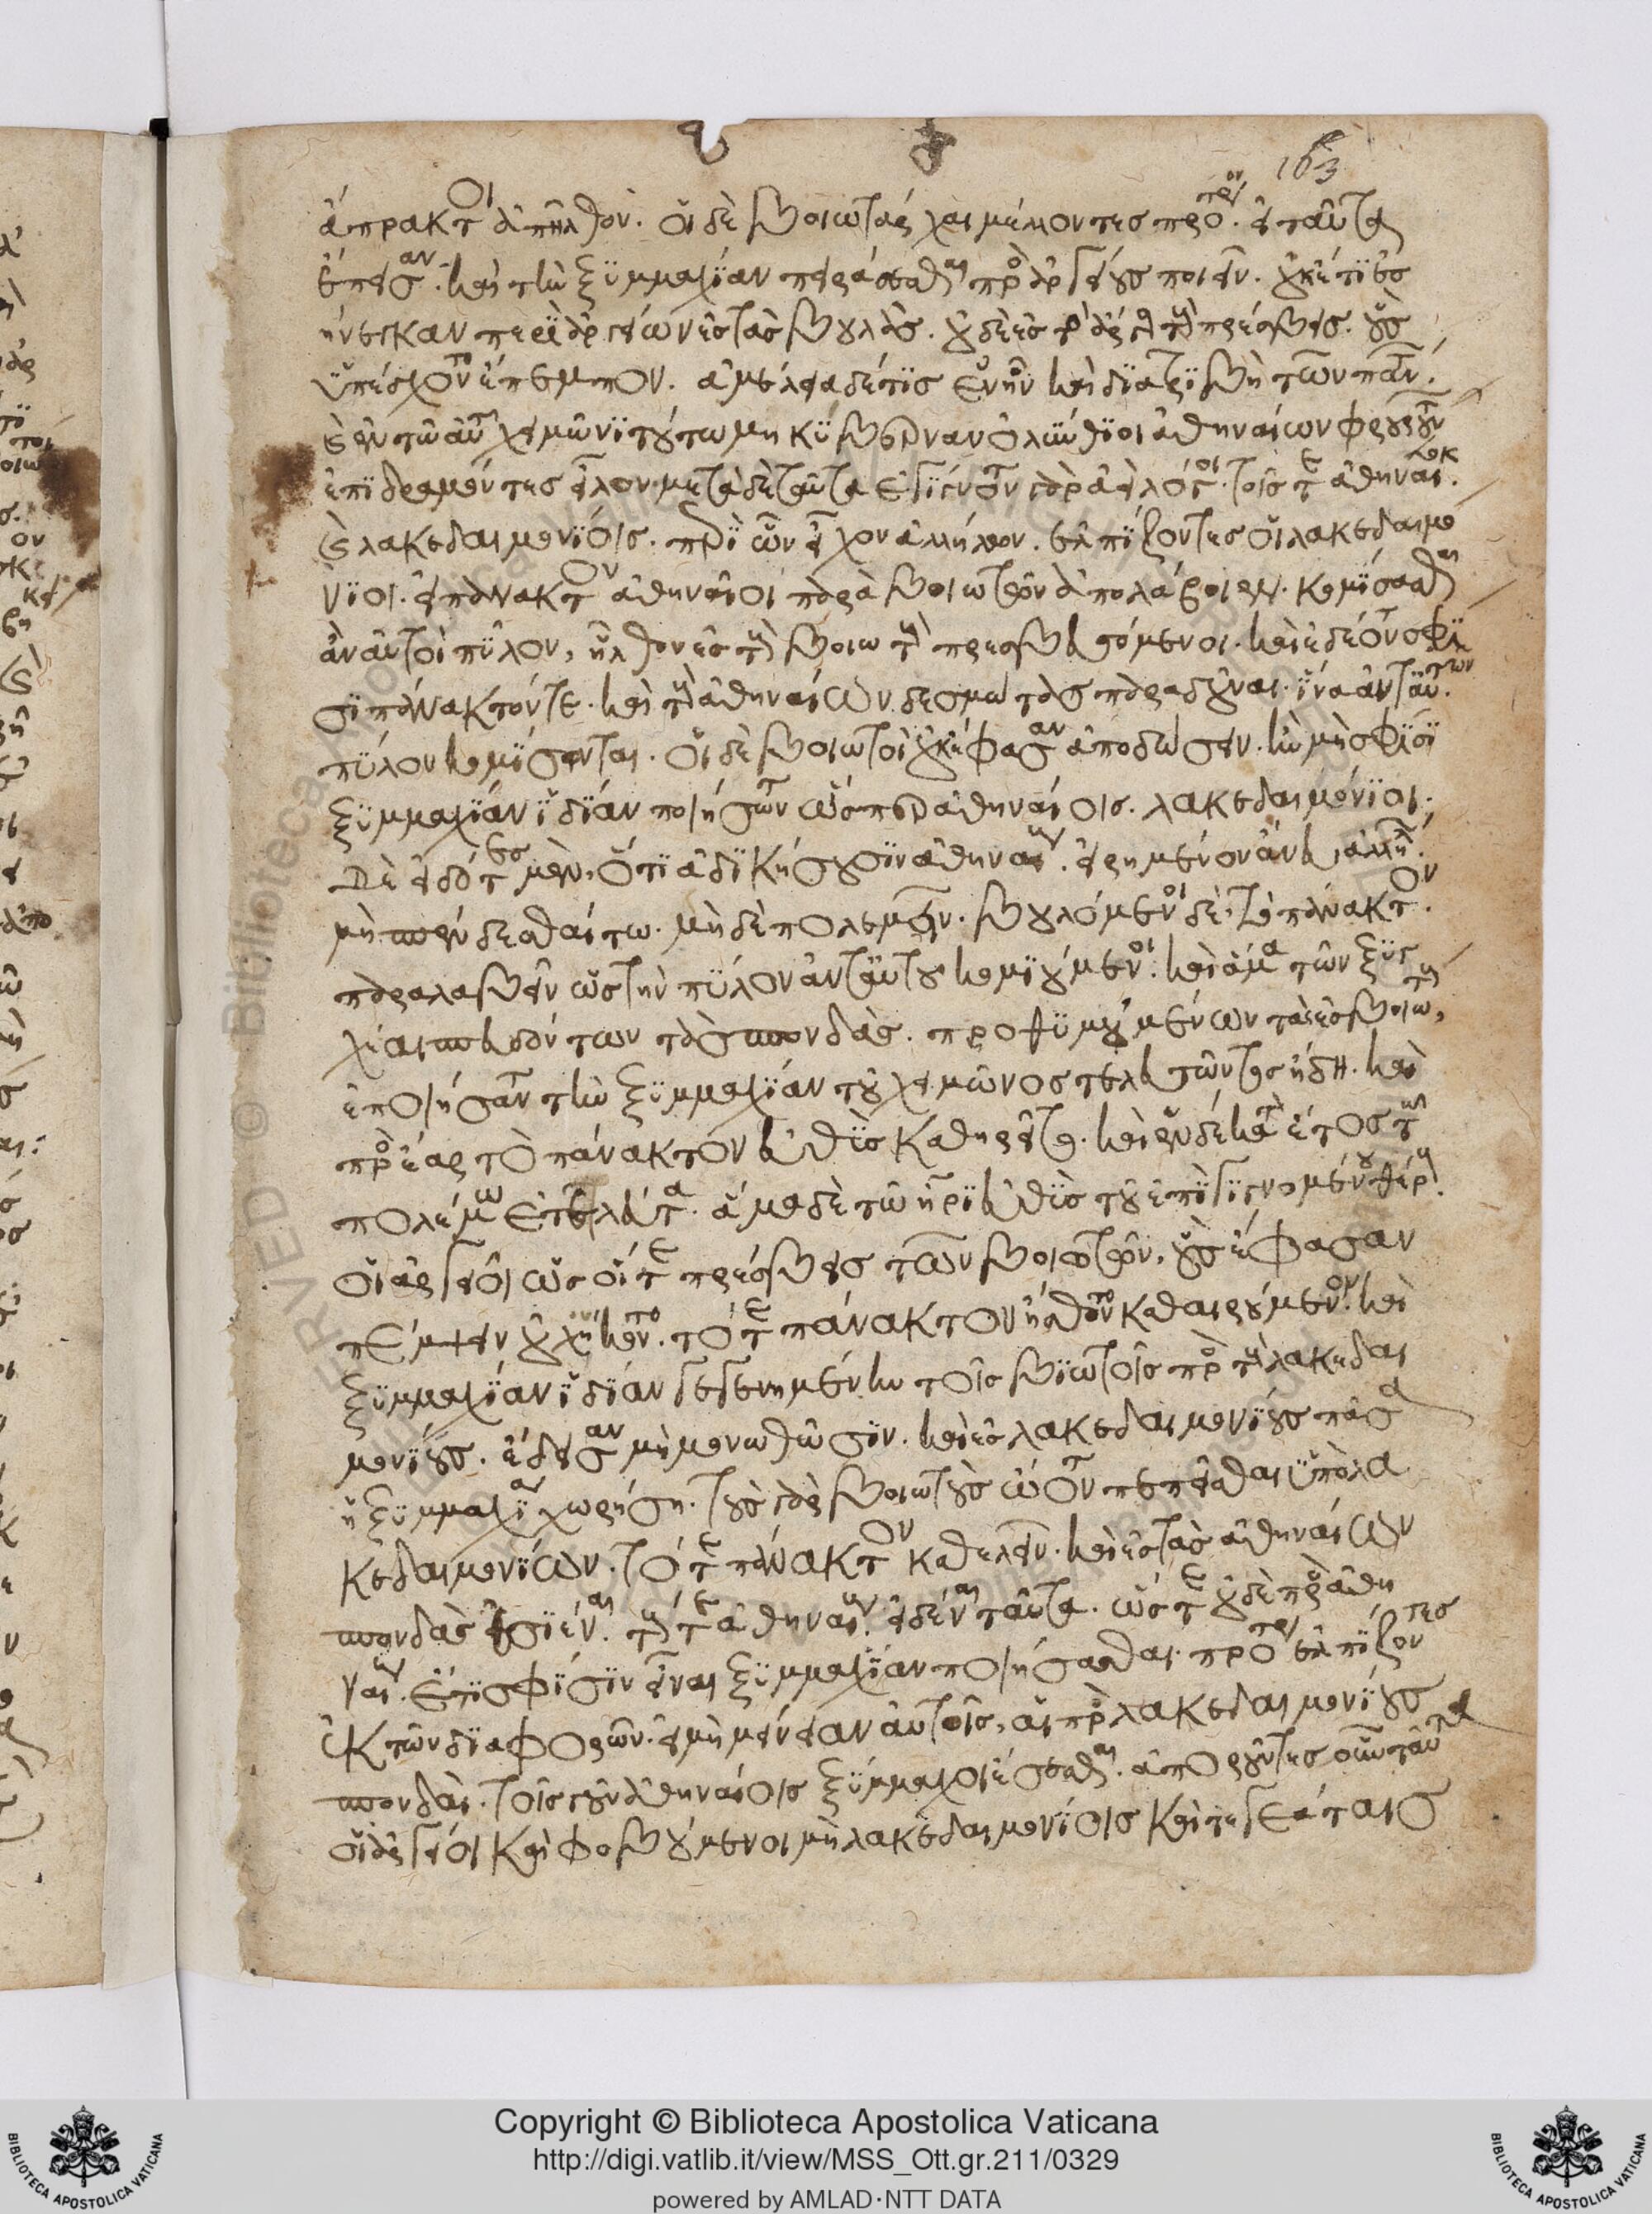 163
ἄπρακτοι ἀπῆλθον. οἱ δὲ βοιωτάρχαι μέλλοντες πρότερον. εἰ ταῦτα
ἔπεισαν. καὶ τὴν ξϋμμαχίαν πειράσεσθαι πρὸς ἀργείους ποιεῖν. οὐκέτι ἐσ
ήνεγκαν περὶ ἀργείων ἐς τὰς βουλάς. οὐδὲ ἐς τὸ ἄργος τοὺς πρέσβεις. οὓς
ὑπέσχοντο ἔπεμπον. ἀμέλεια δέ τις ἐνῆν καὶ διατριβὴ τῶν πάντων.
καὶ ἐν τῶ αὐτῶ χειμῶνι τούτω μηκύβερναν ὀλύνθιοι ἀθηναίων φρουρούντων
ἐπιδραμόντες εἷλον. μετὰ δὲ ταῦτα ἐγίγνοντο γὰρ ἀεὶ λόγοι. τοῖς τε ἀθηναίοις.
καὶ λακεδαιμονίοις. περὶ ὧν εἶχον ἀλλήλων. ἐλπίζοντες οἱ λακεδαιμό
νιοι. εἰ πάνακτον ἀθηναῖοι παρὰ βοιωτῶν ἀπολάβοιεν. κομίσασθαι
ἂν αὐτοὶ πύλον, ἦλθον ἐς τοὺς βοιωτοὺς πρεσβευόμενοι. καὶ ἐδέοντο σφί
σι πάνακτόν τε. καὶ τοὺς ἀθηναίων δεσμώτας παραδοῦναι. ἵνα ἀντ αὐτῶν
πύλον κομίσωνται. οἱ δὲ βοιωτοὶ οὐκ ἔφασαν ἀποδώσειν. ἢν μὴ σφίσι
ξυμμαχίαν ἰδίαν ποιήσωνται ὥσπερ ἀθηναίοις. λακεδαιμόνιοι.
δὲ εἰδότες μὲν, ὅτι ἀδικήσουσιν ἀθηναίους. εἰρημένον ἄνευ ἀλλήλων.
μὴ σπένδεσθαί τω. μὴ δὲ πολεμεῖν. βουλόμενοι δὲ, τὸ πάνακτον.
παραλαβεῖν ὡς τὴν πύλον ἀντ αὐτοῦ κομιούμενοι. καὶ ἅμα τῶν ξυγ
χέαι σπευδόντων τὰς σπονδὰς. προθυμουμένων τὰ ἐς βοιωτοὺς,
ἐποιήσαντο τὴν ξυμμαχίαν τοῦ χειμῶνος τελευτῶντος ἤδη. καὶ
πρὸς ἔαρ τὸ πάνακτον εὐθὺς καθηρεῖτο. καὶ ἑνδέκατον ἔτος τῶ
πολέμω ἐτελεύτα. ἅμα δὲ τῶ ἦρι εὐθὺς τοῦ ἐπιγιγνομένου θέρους.
οἱ ἀργεῖοι ὡς οἵ τε πρέσβεις τῶν βοιωτῶν, οὓς ἔφασαν
πέμψειν οὐχ ἧκον. τό τε πάνακτον ἤσθοντο καθαιρούμενον. καὶ
ξυμμαχίαν ἰδίαν γεγενημένην τοῖς βοιωτοῖς πρὸς τοὺς λακεδαι
μονίους. ἔδεισαν μὴ μονωθῶσιν. καὶ ἐς λακεδαιμονίους πᾶσα
ἡ ξυμμαχία χωρήση. τοὺς γὰρ βοιωτοὺς ὤοντο πεπεῖσθαι ὑπὸ λα
κεδαιμονίων. τό τε πάνακτον καθελεῖν. καὶ ἐς τὰς ἀθηναίων
σπονδὰς ἐσιέναι. τούς τε ἀθηναίους. εἰδέναι ταῦτα. ὥστε οὐδὲ πρὸς ἀθη
ναίους. ἔτι σφίσιν εἶναι ξυμμαχίαν ποιήσασθαι. πρότερον ἐλπίζοντες
ἐκ τῶν διαφορῶν. εἰ μὴ μείνειαν αὐτοῖς, αἱ πρὸς λακεδαιμονίους
σπονδαί. τοῖς γοῦν ἀθηναίοις ξύμμαχοι ἔσεσθαι. ἀποροῦντες οὖν ταῦτα
οἱ ἀργεῖοι καὶ φοβούμενοι μὴ λακεδαιμονίοις καὶ τεγεάταις
Copyright © Biblioteca Apostolica Vaticana
http://digi.vatlib.it/view/MSS_Ott.gr.211/0329
powered by AMLAD·NTT DATA
BIBLIOTECA APOSTOLICA VATICANA
BIBLIOTECA APOSTOLICA VATICANA